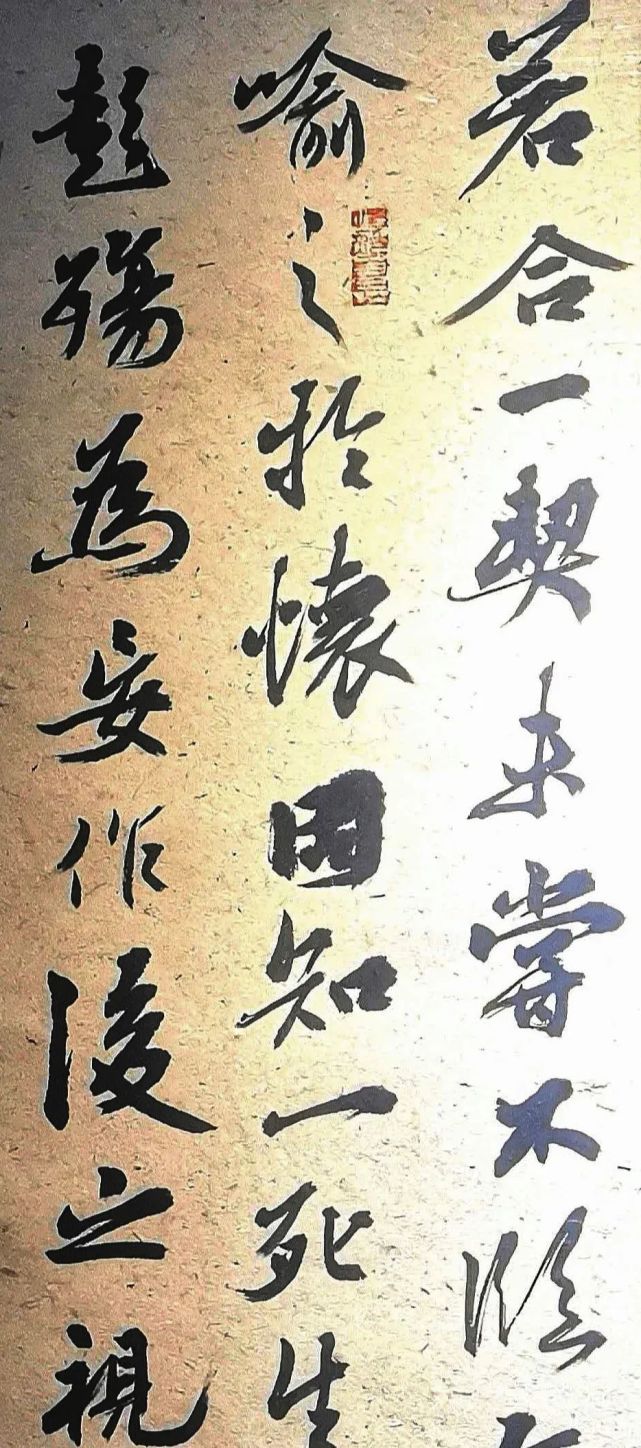 若合一契未嘗不臨
喻之於懷固知一死生
彭殤為妄作後之視